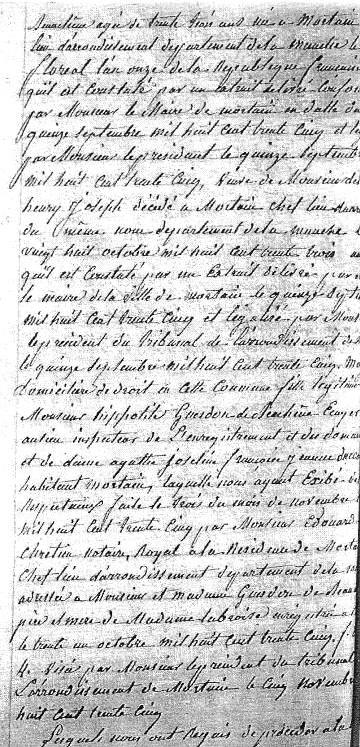 âgée de trente trois ans née a Mortain
lieu d'arrondissement departement de la manche le
floreal l'an onze de la Republique francaise
qu'il est constaté par un extrait delivré conforme
par Monsieur le Maire de mortain en datte du
quinze septembre mil huit cent trente cinq et
par Monsieur le president le quinze septembre
mil huit cent trente cinq, veuve de Monsieur
henry Joseph décédé a Mortain chef lieu
du même nom departement de la manche le
vingt huit octobre mil huit cent trente trois
qu'il est constaté par un Extrait délivré par
le maire de la ville de mortain le quinze septembre
mil huit cent trente cinq et legalisé par Monsieur
le president du Tribunal de l'arrondissement de
le quinze septembre mil huit cent trente cinq,
domiciliée de droit en cette Commune fille légitime
Monsieur hippolite Guerdon de Ecuyer
ancien inspecteur de L'enregistrement et des domaines
et de dame agathe Joseline françoise
habitant mortain, laquelle nous ayant Exibé
Respectueux faite le trois du mois de novembre
mil huit cent trente cinq par Monsieur Edouard
Chretien notaire, Royal a la Residence de Mortain
Chef lieu d'arrondissement departement de la
adressée a Monsieur et madame Guerdon de
père et mere de Madame enregistré a
le trente un octobre mil huit cent trente cinq, f.
Visé par Monsieur le president du tribunal
L'arrondissement de Mortain le cinq novembre
huit cent trente cinq
Lequel nous ont Requis de procéder a la